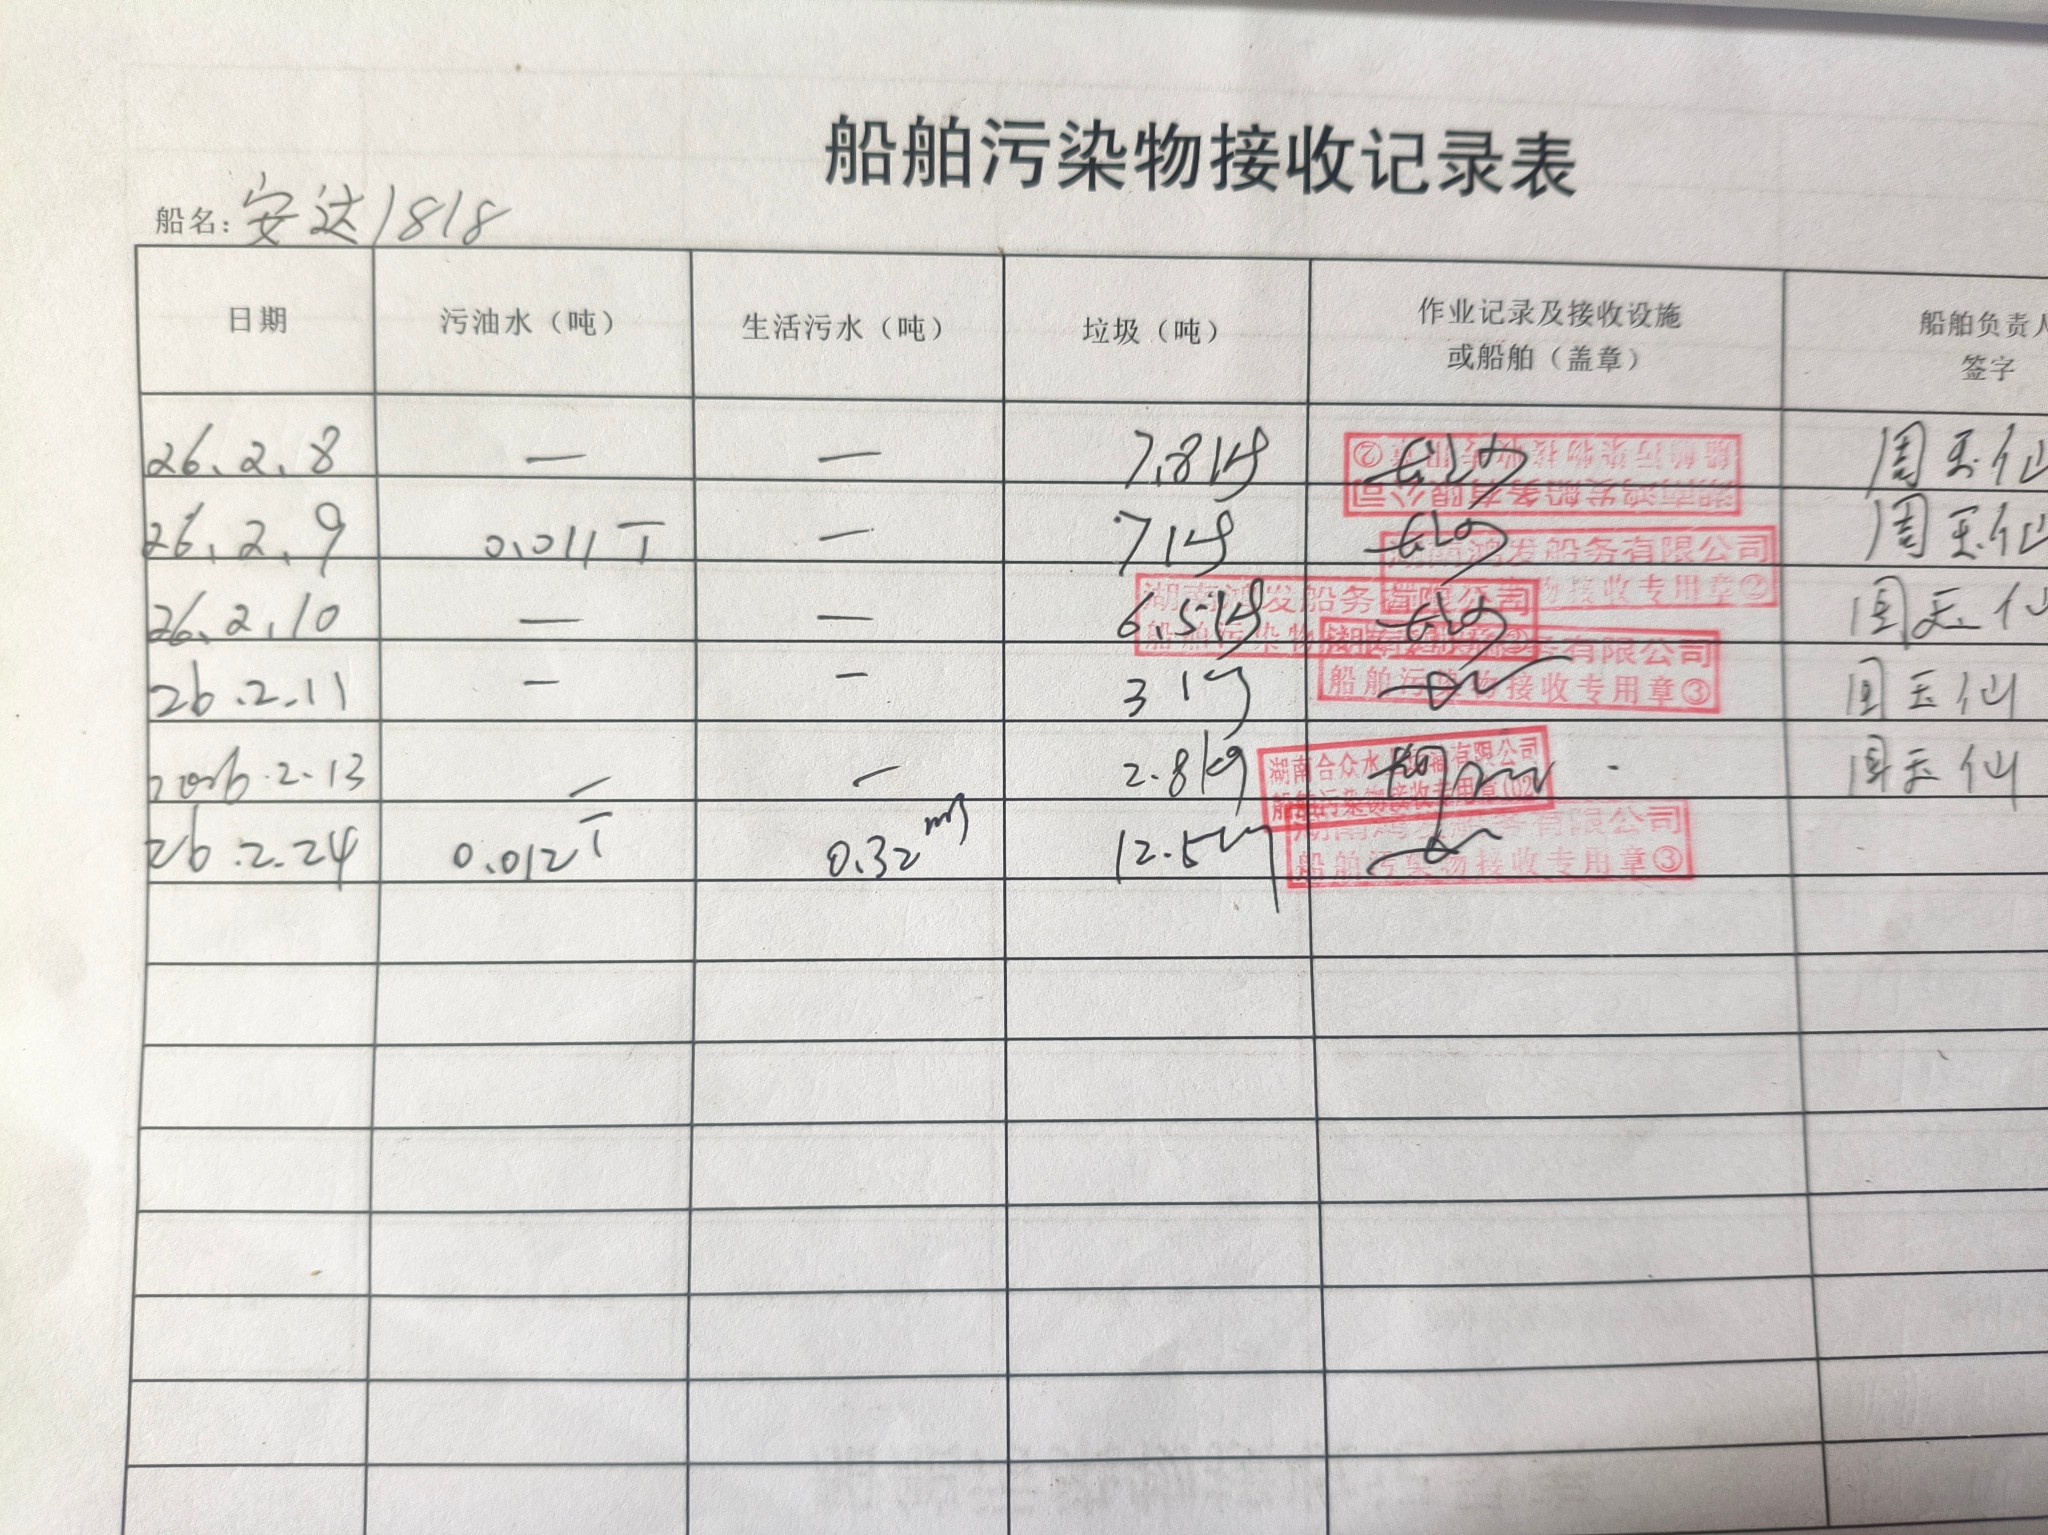 船舶污染物接收记录表
船名：安达1818
日期 污油水（吨） 生活污水（吨） 垃圾（吨） 作业记录及接收设施或船舶（盖章） 船舶负责人签字
26.2.8 — — 7.8kg 周玉仙
湖南鸿发船务有限公司
船舶污染物接收专用章②
26.2.9 0.011T — 7kg 周玉仙
湖南鸿发船务有限公司
物接收专用章②
26.2.10 — — 6.5kg 周玉仙
湖南鸿发船务有限公司
船舶污染物
26.2.11 — — 3kg 周玉仙
务有限公司
船舶污染物接收专用章③
2026.2.13 — — 2.8kg 周玉仙
湖南合众水 有限公司
船舶污染物接收专用章(02)
26.2.24 0.012T 0.32m³ 12.5kg
湖南鸿发船务有限公司
船舶污染物接收专用章③